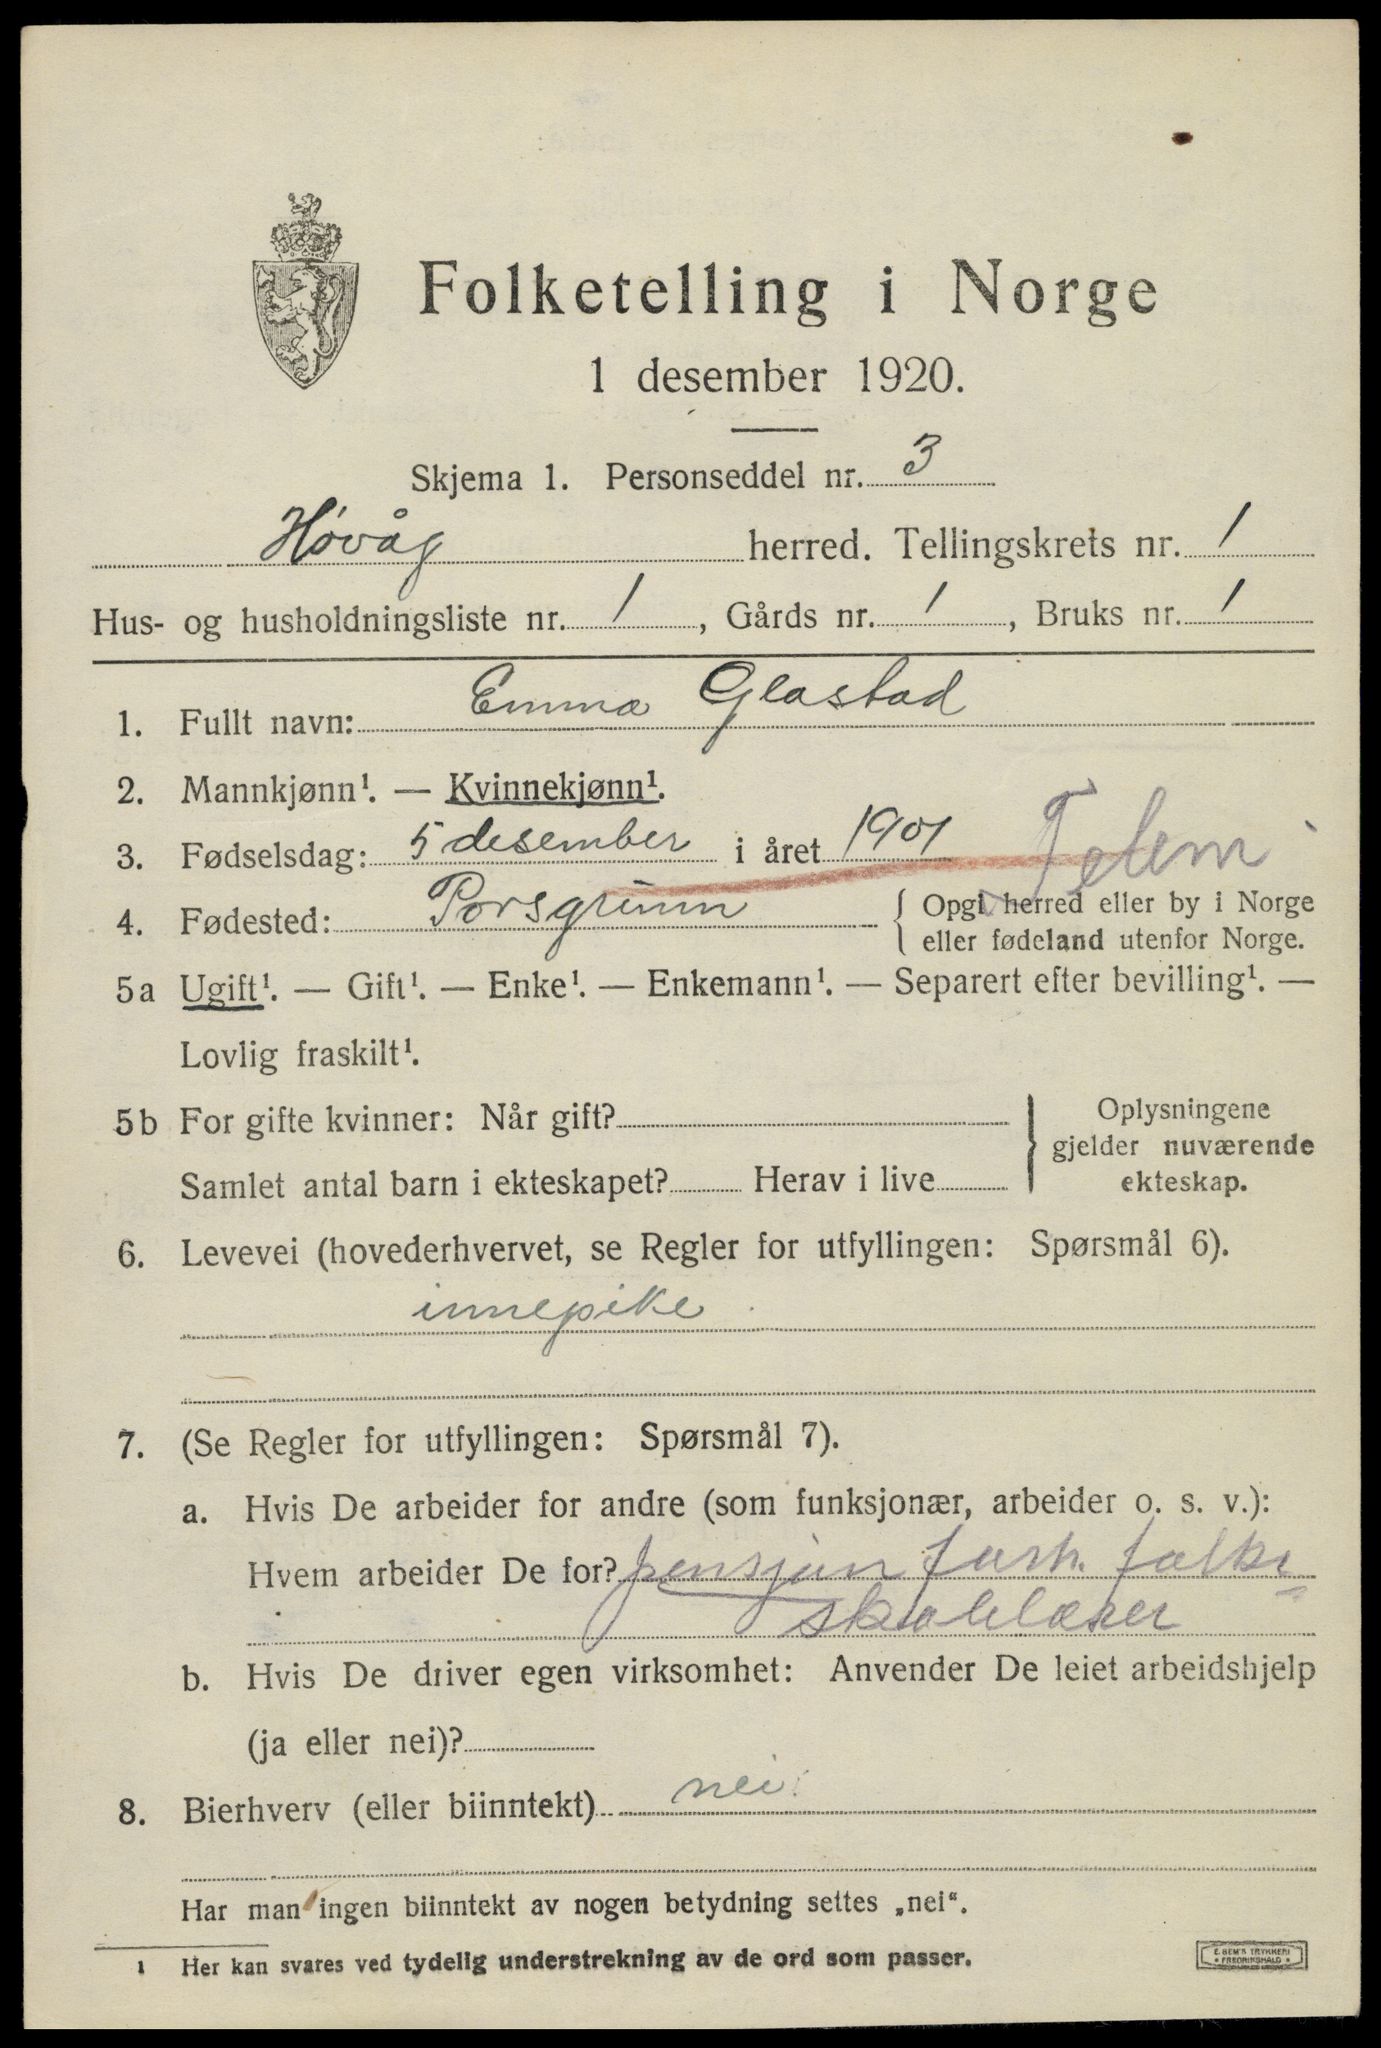 Folketelling i Norge
1 desember 1920.
Skjema 1. Personseddel nr. 3
Høvåg herred. Tellingskrets nr. 1
Hus- og husholdningsliste nr. 1, Gårds nr. 1, Bruks nr. 1
1. Fullt navn: Emma Glastad
2. Mannkjønn¹. — Kvinnekjønn¹.
3. Fødselsdag: 5 desember i året 1901 Telem
4. Fødested: Porsgrunn { Opgi herred eller by i Norge
eller fødeland utenfor Norge.
5a Ugift¹. — Gift¹. — Enke¹. — Enkemann¹. — Separert efter bevilling¹. —
Lovlig fraskilt¹.
5b For gifte kvinner: Når gift?
Samlet antal barn i ekteskapet? Herav i live
} Oplysningene
gjelder nuværende
ekteskap.
6. Levevei (hovederhvervet, se Regler for utfyllingen: Spørsmål 6).
innepike.
7. (Se Regler for utfyllingen: Spørsmål 7).
a. Hvis De arbeider for andre (som funksjonær, arbeider o. s. v.):
Hvem arbeider De for? pensjon forh. folke=
skolelærer
b. Hvis De driver egen virksomhet: Anvender De leiet arbeidshjelp
(ja eller nei)?
8. Bierhverv (eller biinntekt) nei.
Har man ingen biinntekt av nogen betydning settes „nei“.
1 Her kan svares ved tydelig understrekning av de ord som passer.
E. SEM'S TRYKKERI
FREDRIKSHALD